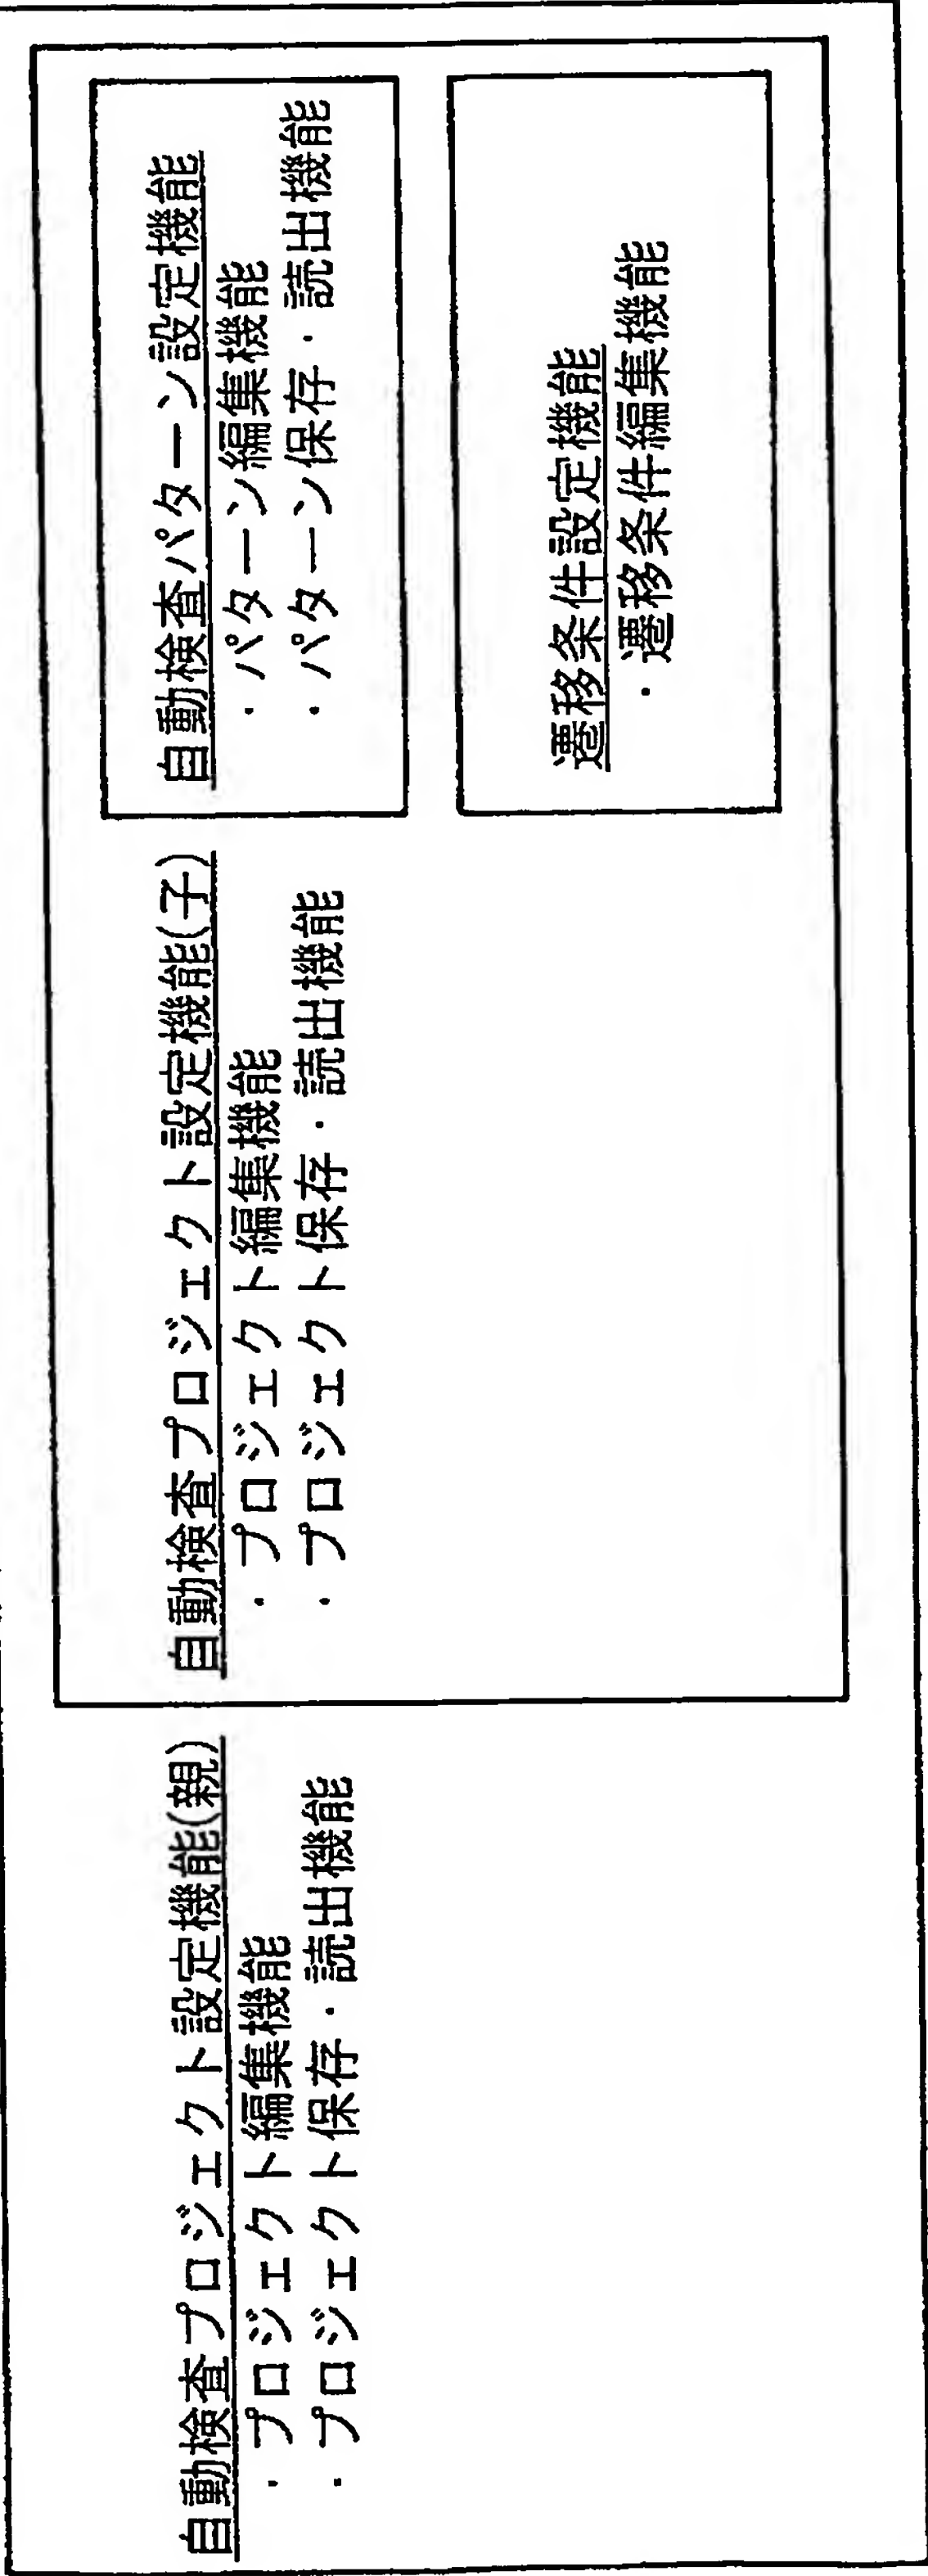 自動検査プロジェクト設定機能(親)
・プロジェクト編集機能
・プロジェクト保存・読出機能
自動検査プロジェクト設定機能(子)
・プロジェクト編集機能
・プロジェクト保存・読出機能
自動検査パターン設定機能
・パターン編集機能
・パターン保存・読出機能
遷移条件設定機能
・遷移条件編集機能